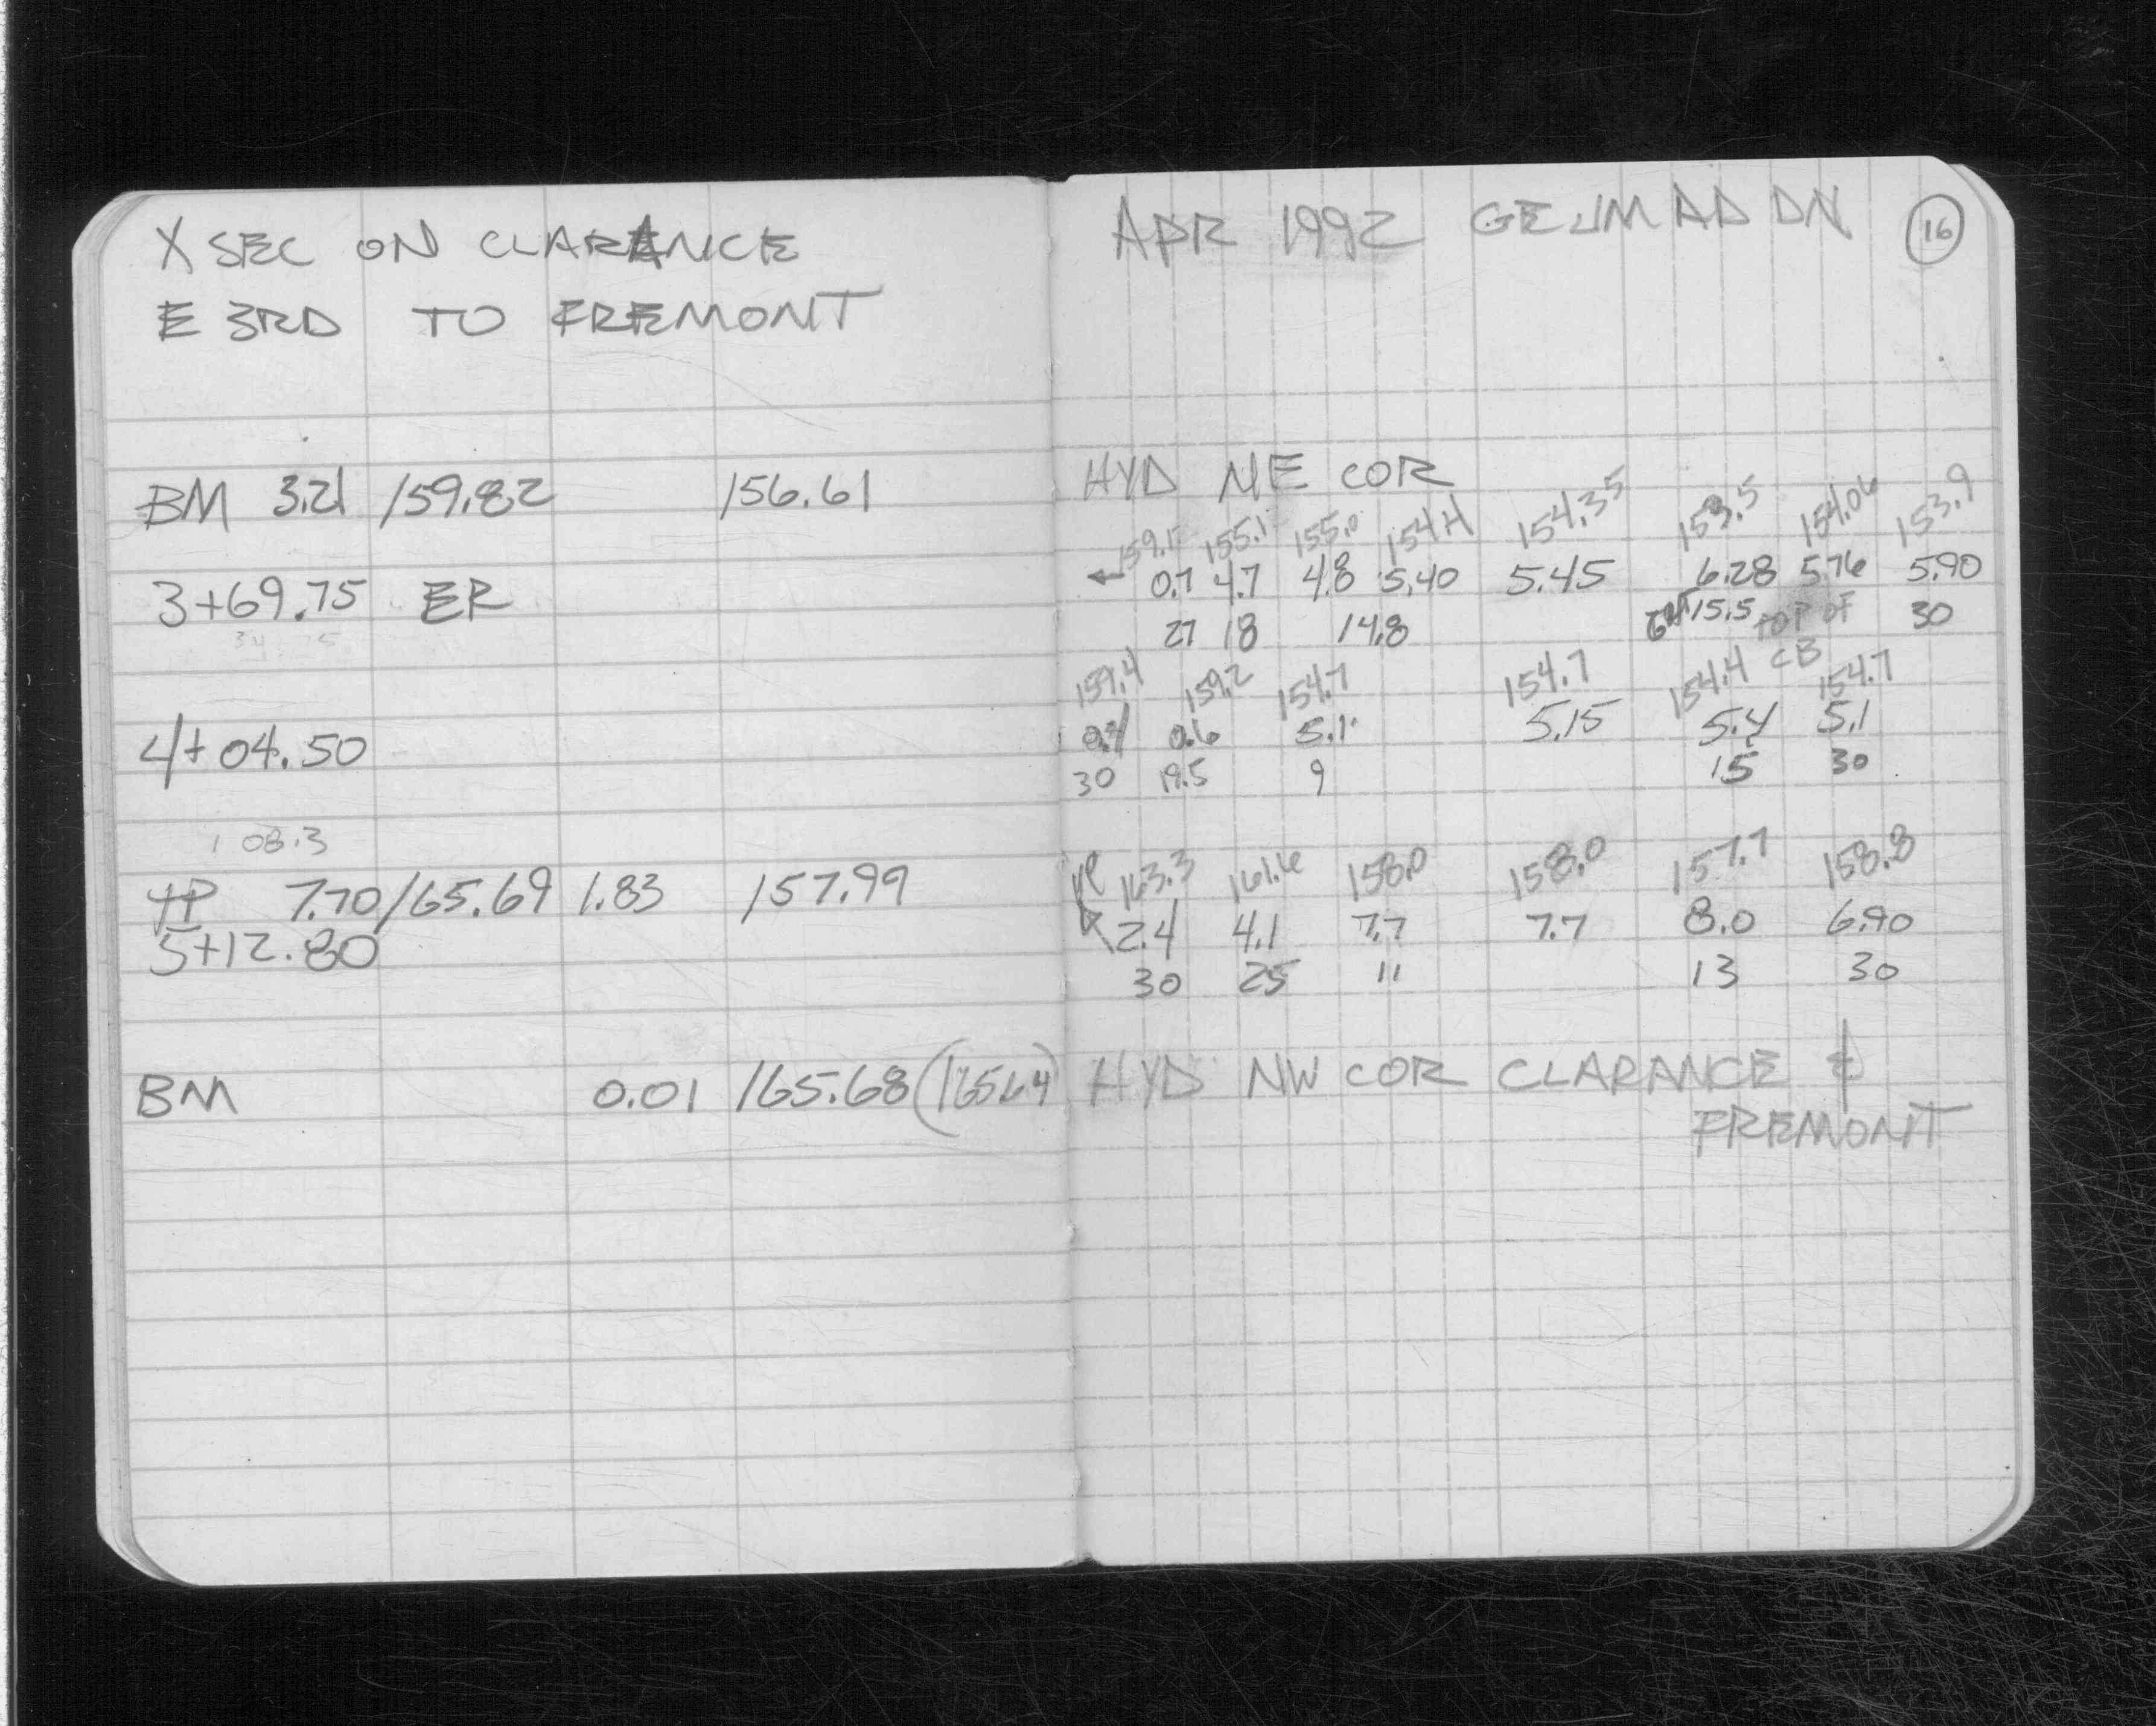 X SEC ON CLARANCE
E 3RD TO FREMONT
BM 3.21 159.82 156.61
3+69.75 ER
34.75
4+04.50
1 08.3
TP 7.70 165.69 1.83 157.99
5+12.80
BM 0.01 165.68 (165.64)
APR 1992 GE JM AD DN 16
HYD NE COR
159.1 155.1 155.0 154.4 154.35 153.5 154.06 153.9
← 0.7 4.7 4.8 5.40 5.45 6.28 5.76 5.90
27 18 14.8 15.5 TOP OF 30
CB
159.4 159.2 154.7 154.7 154.4 154.7
0.4 0.6 5.1 5.15 5.4 5.1
30 19.5 9 15 30
163.3 161.6 158.0 158.0 157.7 158.8
2.4 4.1 7.7 7.7 8.0 6.90
30 25 11 13 30
HYD NW COR CLARANCE &
FREMONT